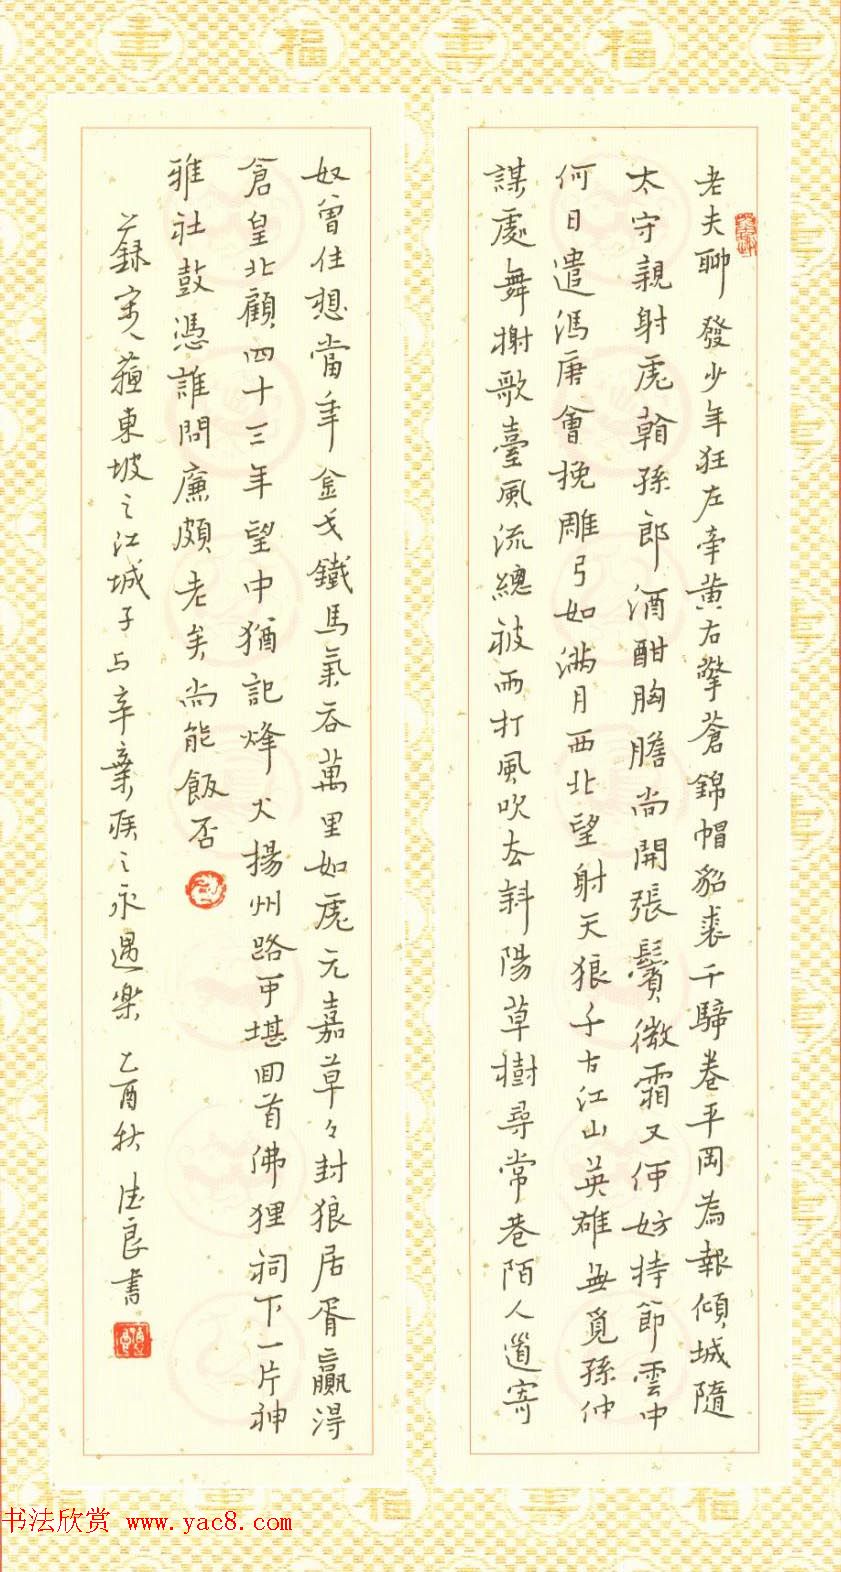 老夫聊發少年狂左牽黃右擎蒼錦帽貂裘千騎卷平岡為報傾城隨
太守親射虎看孫郎酒酣胸膽尚開張鬢微霜又何妨持節雲中
何日遣馮唐會挽雕弓如滿月西北望射天狼千古江山英雄無覓孫仲
謀處舞榭歌臺風流總被雨打風吹去斜陽草樹尋常巷陌人道寄
奴曾住想當年金戈鐵馬氣吞萬里如虎元嘉草々封狼居胥贏得
倉皇北顧四十三年望中猶記烽火揚州路可堪回首佛狸祠下一片神
雅社鼓憑誰問廉頗老矣尚能飯否
錄宋蘇東坡之江城子与辛棄疾之永遇樂 乙酉秋 良書
书法欣赏 www.yac8.com